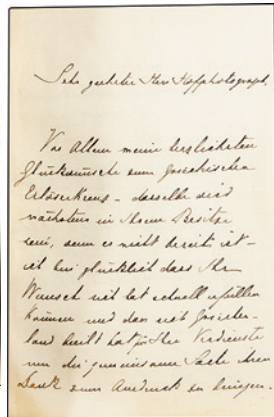 Sehr geehrter Herr Hofphotograph.
Vor Allem meine herzlichsten
Glückwünsche zum griechischen
Erlöserkreuz - dasselbe wird
nächstens in Ihrem Besitze
sein, wenn es nicht bereits ist -
ich bin glücklich dass Ihr
Wunsch sich hat schnell erfüllen
können und dass sich Griechen-
land beeilt hat für Ihre Verdienste
um die gemeinsame Sache Ihren
Dank zum Ausdruck zu bringen.